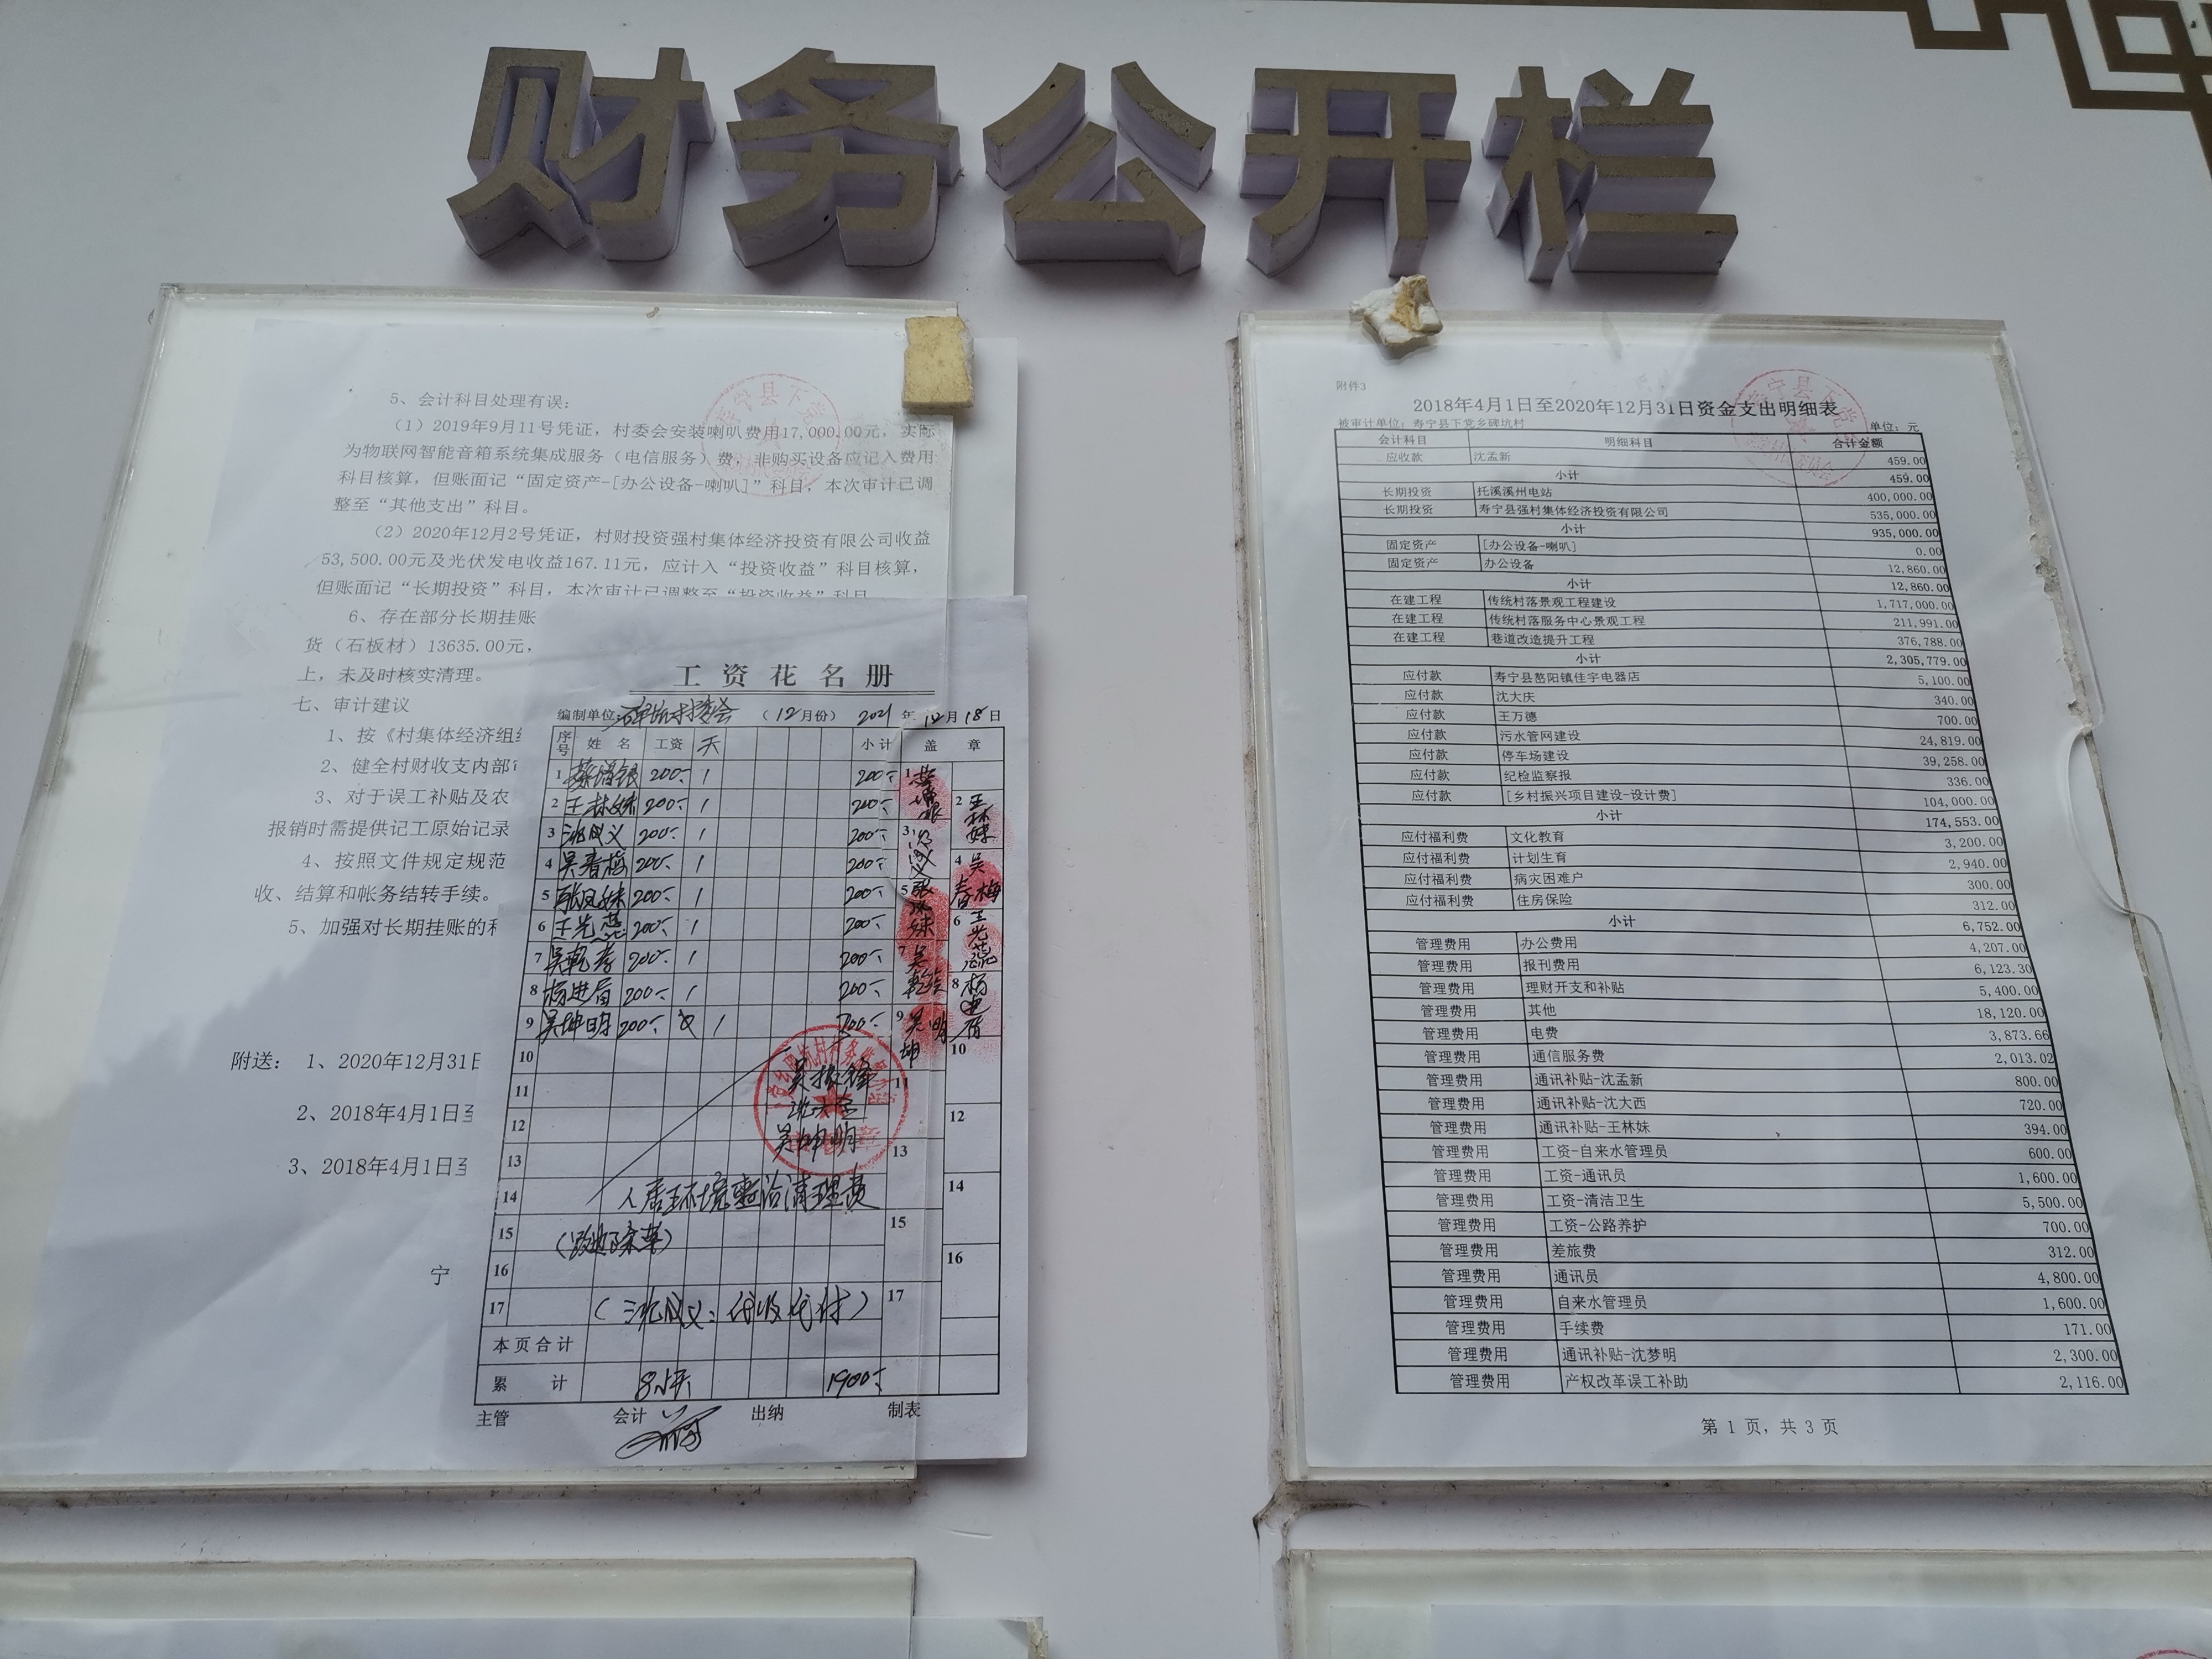 财务公开栏
5、会计科目处理有误：
（1）2019年9月11号凭证，村委会安装喇叭费用17,000.00元，实际
为物联网智能音箱系统集成服务（电信服务）费，非购买设备应记入费用
科目核算，但账面记“固定资产-[办公设备-喇叭]”科目，本次审计已调
整至“其他支出”科目。
（2）2020年12月2号凭证，村财投资强村集体经济投资有限公司收益
53,500.00元及光伏发电收益167.11元，应计入“投资收益”科目核算，
但账面记“长期投资”科目，本次审计已调整至“投资收益”科目
6、存在部分长期挂账
货（石板材）13635.00元，
上，未及时核实清理。
七、审计建议
1、按《村集体经济组
2、健全村财收支内部
3、对于误工补贴及农
报销时需提供记工原始记录
4、按照文件规定规范
收、结算和帐务结转手续。
5、加强对长期挂账的
附送： 1、2020年12月31
2、2018年4月1日至
3、2018年4月1日至
宁
工资花名册
编制单位：碑坑村委会 （12月份） 2021年12月18日
序号 姓名 工资 天 小计 盖章
1 200 1 200
2 王林妹 200 1 200 王林妹
3 200 1 200
4 吴春梅 200 1 200 吴春梅
5 张凤妹 200 1 200 张凤妹
6 王光燕 200 1 200 王光燕
7 吴乾孝 200 1 200
8 杨进眉 200 1 200
9 吴坤明 200 1 吴坤明
10 10
11 吴振锋 11
12 12
13 吴坤明 13
14 人居环境整治清理员 14
15 15
16 16
17 代收代付） 17
本页合计
累计 1900
主管 会计 出纳 制表
附件3
2018年4月1日至2020年12月31日资金支出明细表
被审计单位：寿宁县下党乡碑坑村 单位：元
会计科目 明细科目 合计金额
应收款 沈孟新 459.00
小计 459.00
长期投资 托溪溪州电站 400,000.00
长期投资 寿宁县强村集体经济投资有限公司 535,000.00
小计 935,000.00
固定资产 [办公设备-喇叭] 0.00
固定资产 办公设备 12,860.00
小计 12,860.00
在建工程 传统村落景观工程建设 1,717,000.00
在建工程 传统村落服务中心景观工程 211,991.00
在建工程 巷道改造提升工程 376,788.00
小计 2,305,779.00
应付款 寿宁县鳌阳镇佳宇电器店 5,100.00
应付款 沈大庆 340.00
应付款 王万德 700.00
应付款 污水管网建设 24,819.00
应付款 停车场建设 39,258.00
应付款 纪检监察报 336.00
应付款 [乡村振兴项目建设-设计费] 104,000.00
小计 174,553.00
应付福利费 文化教育 3,200.00
应付福利费 计划生育 2,940.00
应付福利费 病灾困难户 300.00
应付福利费 住房保险 312.00
小计 6,752.00
管理费用 办公费用 4,207.00
管理费用 报刊费用 6,123.30
管理费用 理财开支和补贴 5,400.00
管理费用 其他 18,120.00
管理费用 电费 3,873.66
管理费用 通信服务费 2,013.02
管理费用 通讯补贴-沈孟新 800.00
管理费用 通讯补贴-沈大西 720.00
管理费用 通讯补贴-王林妹 394.00
管理费用 工资-自来水管理员 600.00
管理费用 工资-通讯员 1,600.00
管理费用 工资-清洁卫生 5,500.00
管理费用 工资-公路养护 700.00
管理费用 差旅费 312.00
管理费用 通讯员 4,800.00
管理费用 自来水管理员 1,600.00
管理费用 手续费 171.00
管理费用 通讯补贴-沈梦明 2,300.00
管理费用 产权改革误工补助 2,116.00
第 1 页，共 3 页